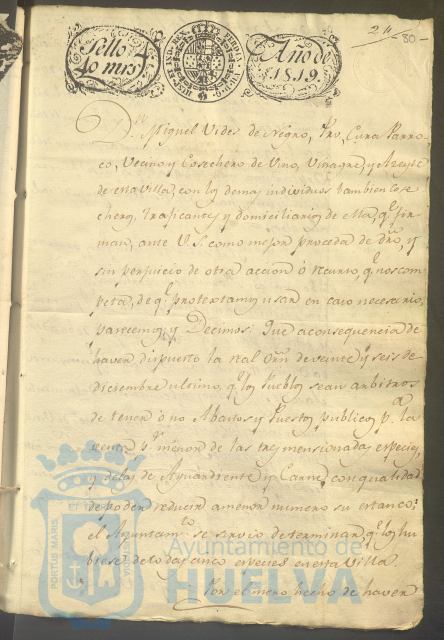 Sello
40 mrs.
HISPAN. ET IND. REX
Año de
1819.
24
80
Dn. Miguel Vides de Negro, Pro, Cura Parro-
co, Vecino y Cosechero de Vino, Vinagre, y Aceyte
de esta Villa, con los demas individuos tambien Cose
cheros, traficantes y domiciliarios de ella, qe. fir-
man, ante V. S. como mejor proceda de dro, y
sin perjuicio de otra accion ó recurso, qe. nos com-
peta, de qe. protestamos usar en caso necesario,
parecemos, y Decimos: Que a consequencia de
haver dispuesto la Real Orn. de veinte y seis de
diciembre ultimo, qe. los Pueblos sean arbitros
de tener ó no Abastos y Puestos publicos pa. la
venta pr. menor de las tres mensionadas especies,
y de las de Aguardiente y Carne, con qualidad
de poder reducir a menor numero su estanco;
el Ayuntamto. se sirvio determinar, qe. los hu-
biese de todas cinco especies en esta Villa.
Por el mero hecho de haver
PORTUS MARIS
Ayuntamiento de
HUELVA